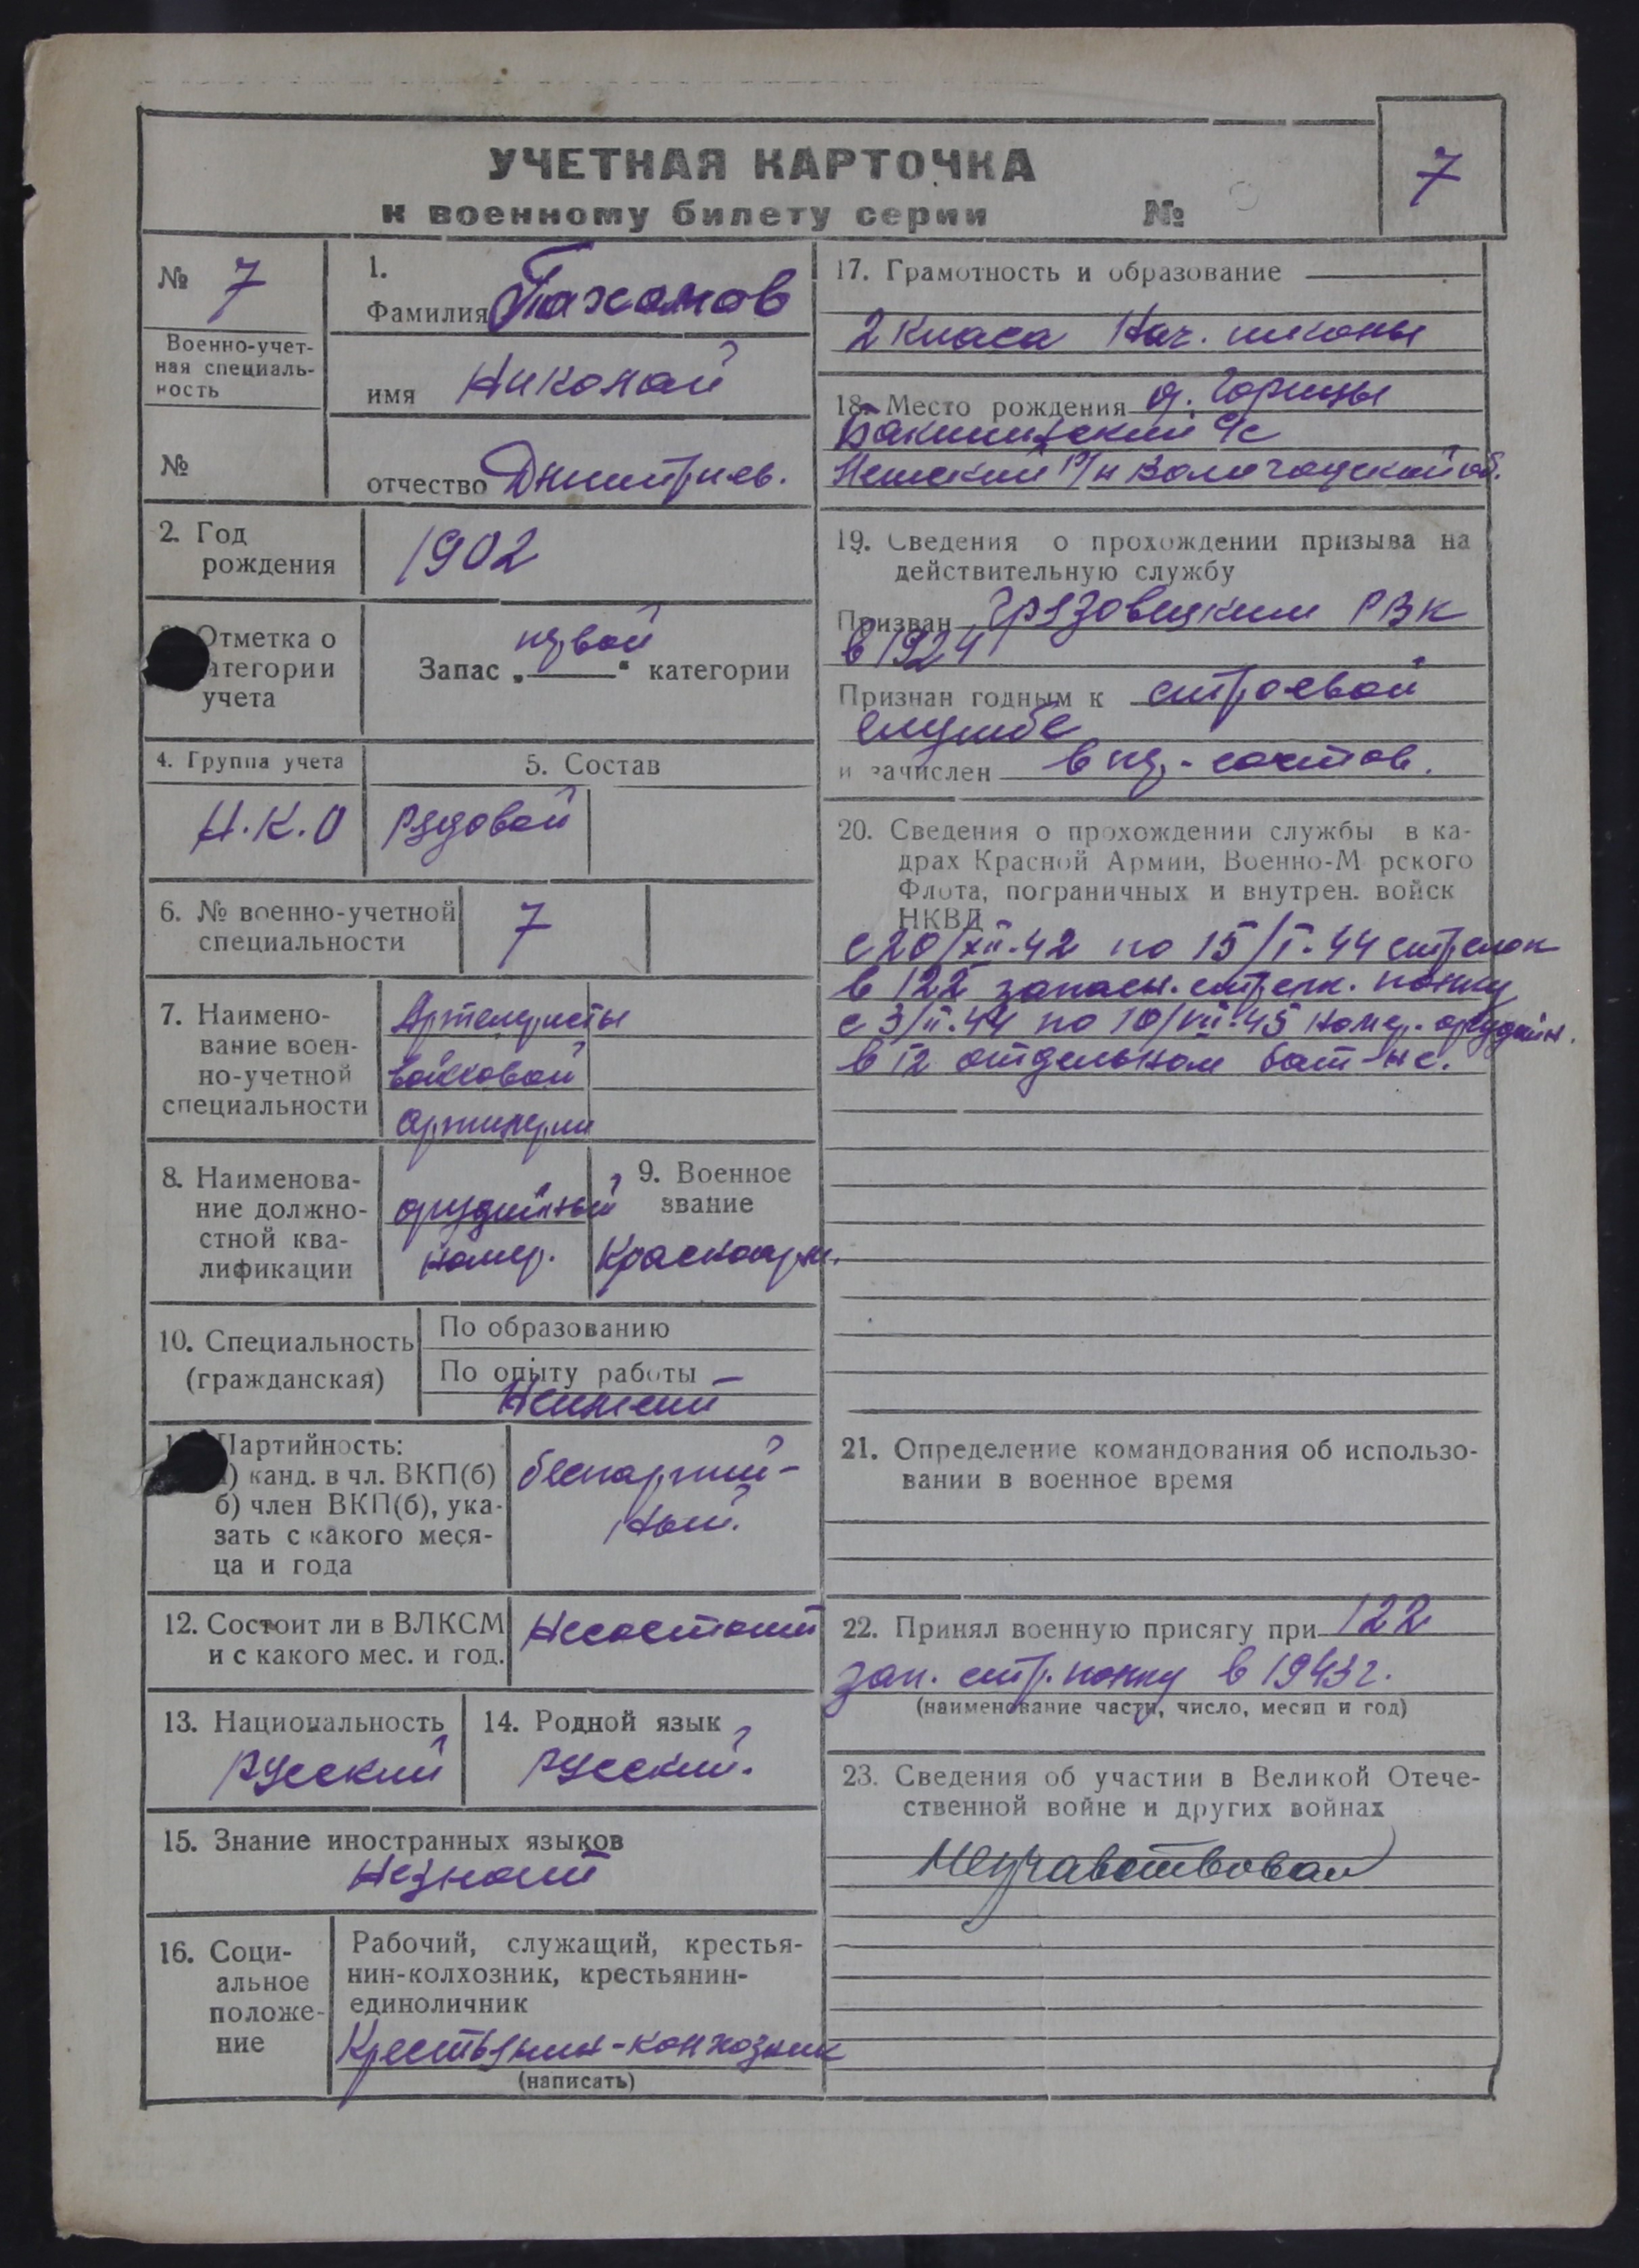 УЧЕТНАЯ КАРТОЧКА
к военному билету серии №
7
№ 7
Военно-учет-
ная специаль-
ность
№
1.
Фамилия Пахомов
имя Николай
отчество Дмитриев.
2. Год
рождения
1902
Отметка о
атегории
учета
Запас „первой“ категории
4. Группа учета
Н.К.О
5. Состав
рядовой
6. № военно-учетной
специальности
7
7. Наимено-
вание воен-
но-учетной
специальности
Артелеристы
войсковой
артилерии
8. Наименова-
ние должно-
стной ква-
лификации
орудийный
номер.
9. Военное
звание
Красноарм.
10. Специальность
(гражданская)
По образованию
По опыту работы
Неимеит
Партийность:
) канд. в чл. ВКП(б)
б) член ВКП(б), ука-
зать с какого меся-
ца и года
беспартий-
ный.
12. Состоит ли в ВЛКСМ
и с какого мес. и год.
Несостоит
13. Национальность
русский
14. Родной язык
русский.
15. Знание иностранных языков
Незнает
16. Соци-
альное
положе-
ние
Рабочий, служащий, крестья-
нин-колхозник, крестьянин-
единоличник
Крестьянин-колхозник
(написать)
17. Грамотность и образование
2 класа Нач. школы
18. Место рождения д.
с/с
р/н Вологодской об.
19. Сведения о прохождении призыва на
действительную службу
Призван Грязовецким РВК
в 1924
Признан годным к строевой
службе
и зачислен в
20. Сведения о прохождении службы в ка-
драх Красной Армии, Военно-М рского
Флота, пограничных и внутрен. войск
НКВД
с 20/XII-42 по 15/I-44 стрелок
в 122 запасн. стрелк. полку
с 3/II-44 по 10/VII-45 номер. орудийн.
в 12 отдельном бат-не.
21. Определение командования об использо-
вании в военное время
22. Принял военную присягу при 122
зап. стр. полку в 1943 г.
(наименование части, число, месяц и год)
23. Сведения об участии в Великой Отече-
ственной войне и других войнах